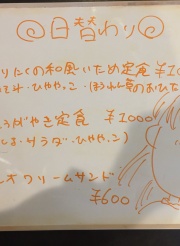 日替わり
りにくの和風いため定食 ¥10
みそ汁・ひややっこ・ほうれん草のおひた
うがやき定食 ¥1000
しる・サラダ・ひややっこ
オクリームサンド
¥600